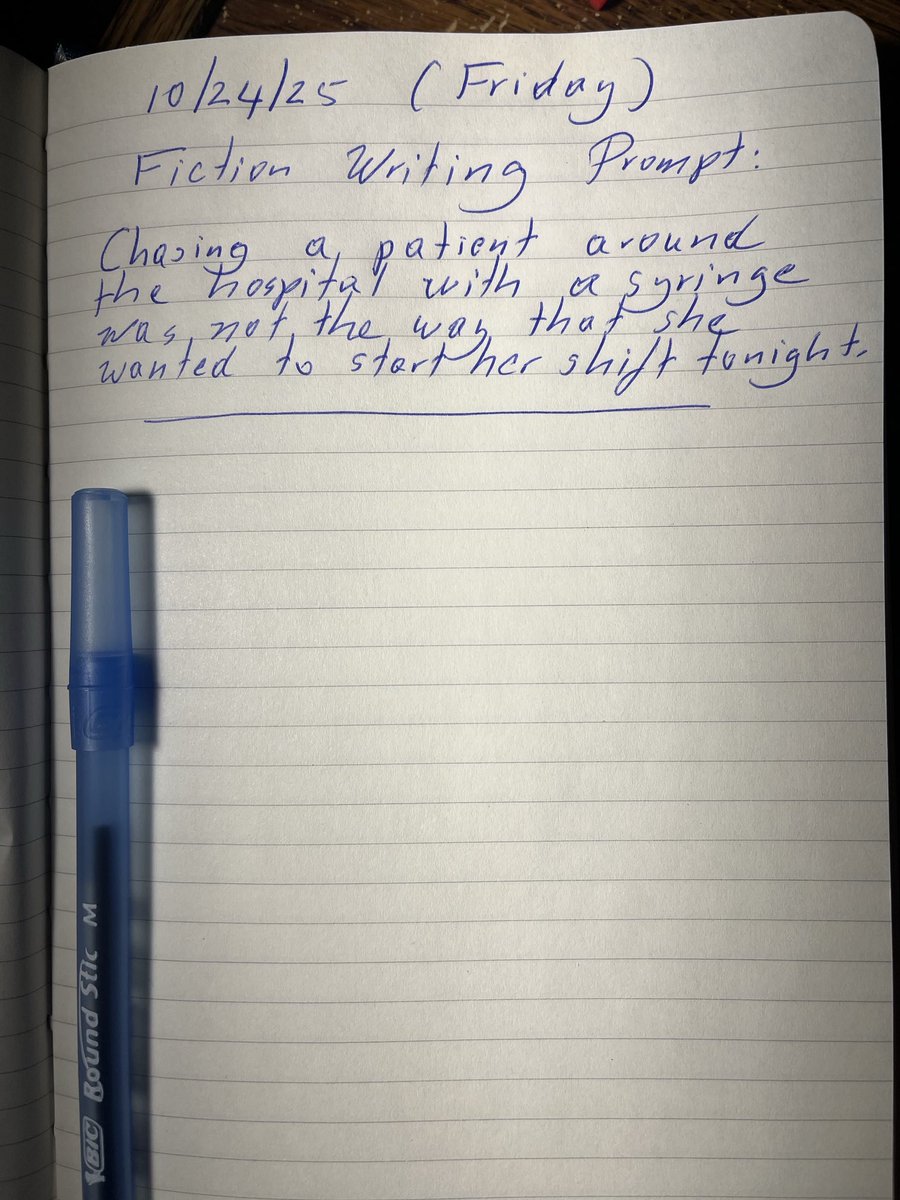 10/24/25 (Friday)
Fiction Writing Prompt:
Chasing a patient around
the hospital with a syringe
was not the way that she
wanted to start her shift tonight.
BIC Round Stic M